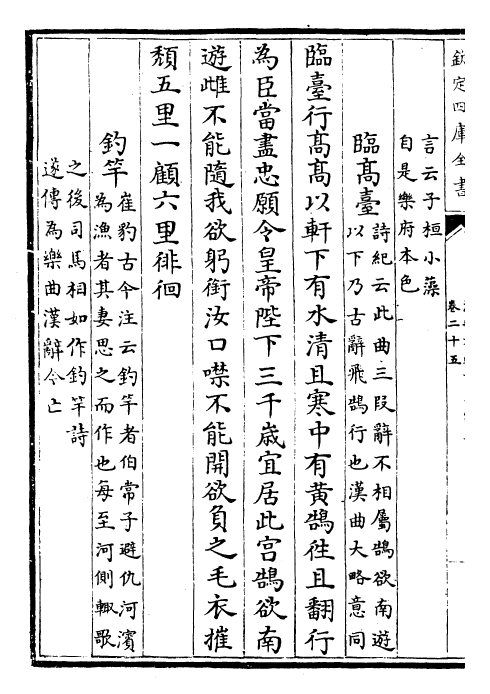 欽定四庫全書
卷二十五
言云子桓小藻
自是樂府本色
臨髙臺
詩紀云此曲三段辭不相屬鵠欲南遊
以下乃古辭飛鵠行也漢曲大略意同
臨臺行髙髙以軒下有水清且寒中有黄鵠徃且翻行
為臣當盡忠願令皇帝陛下三千歳宜居此宫鵠欲南
遊雌不能隨我欲躬銜汝口噤不能開欲負之毛衣摧
頽五里一顧六里徘徊
釣竿
崔豹古今注云釣竿者伯常子避仇河濱
為漁者其妻思之而作也每至河側輙歌
之後司馬相如作釣竿詩
遂傳為樂曲漢辭今亡